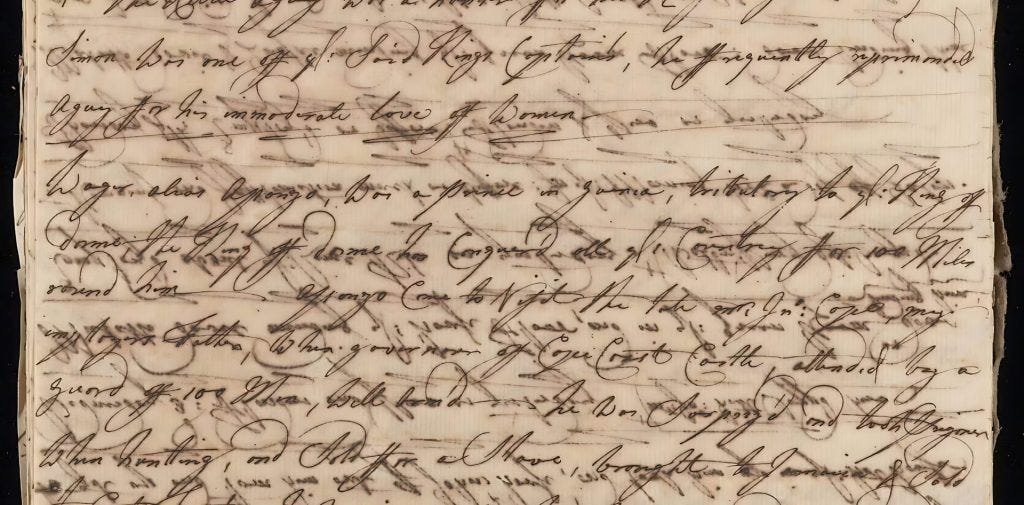 Simon was one of ye: Said Kings Captains, he ffrequently reprimanded
Aguy ffor his immoderate love of Women
Wager alias Apongo, was a prince in Guinea, tributary to ye: King of
Dorme: the King off dome has Conquer'd all ye: Country ffor 100 Miles
round him Apongo Came to Visit the late mr: Jno: Cope, my
imployers ffather, when governour of Cape Coast Castle, attended by a
guard of 100 Men, well he was Surprys'd and took Prisoner
when hunting, and Sold ffor a Slave, brought to Jamaica & Sold